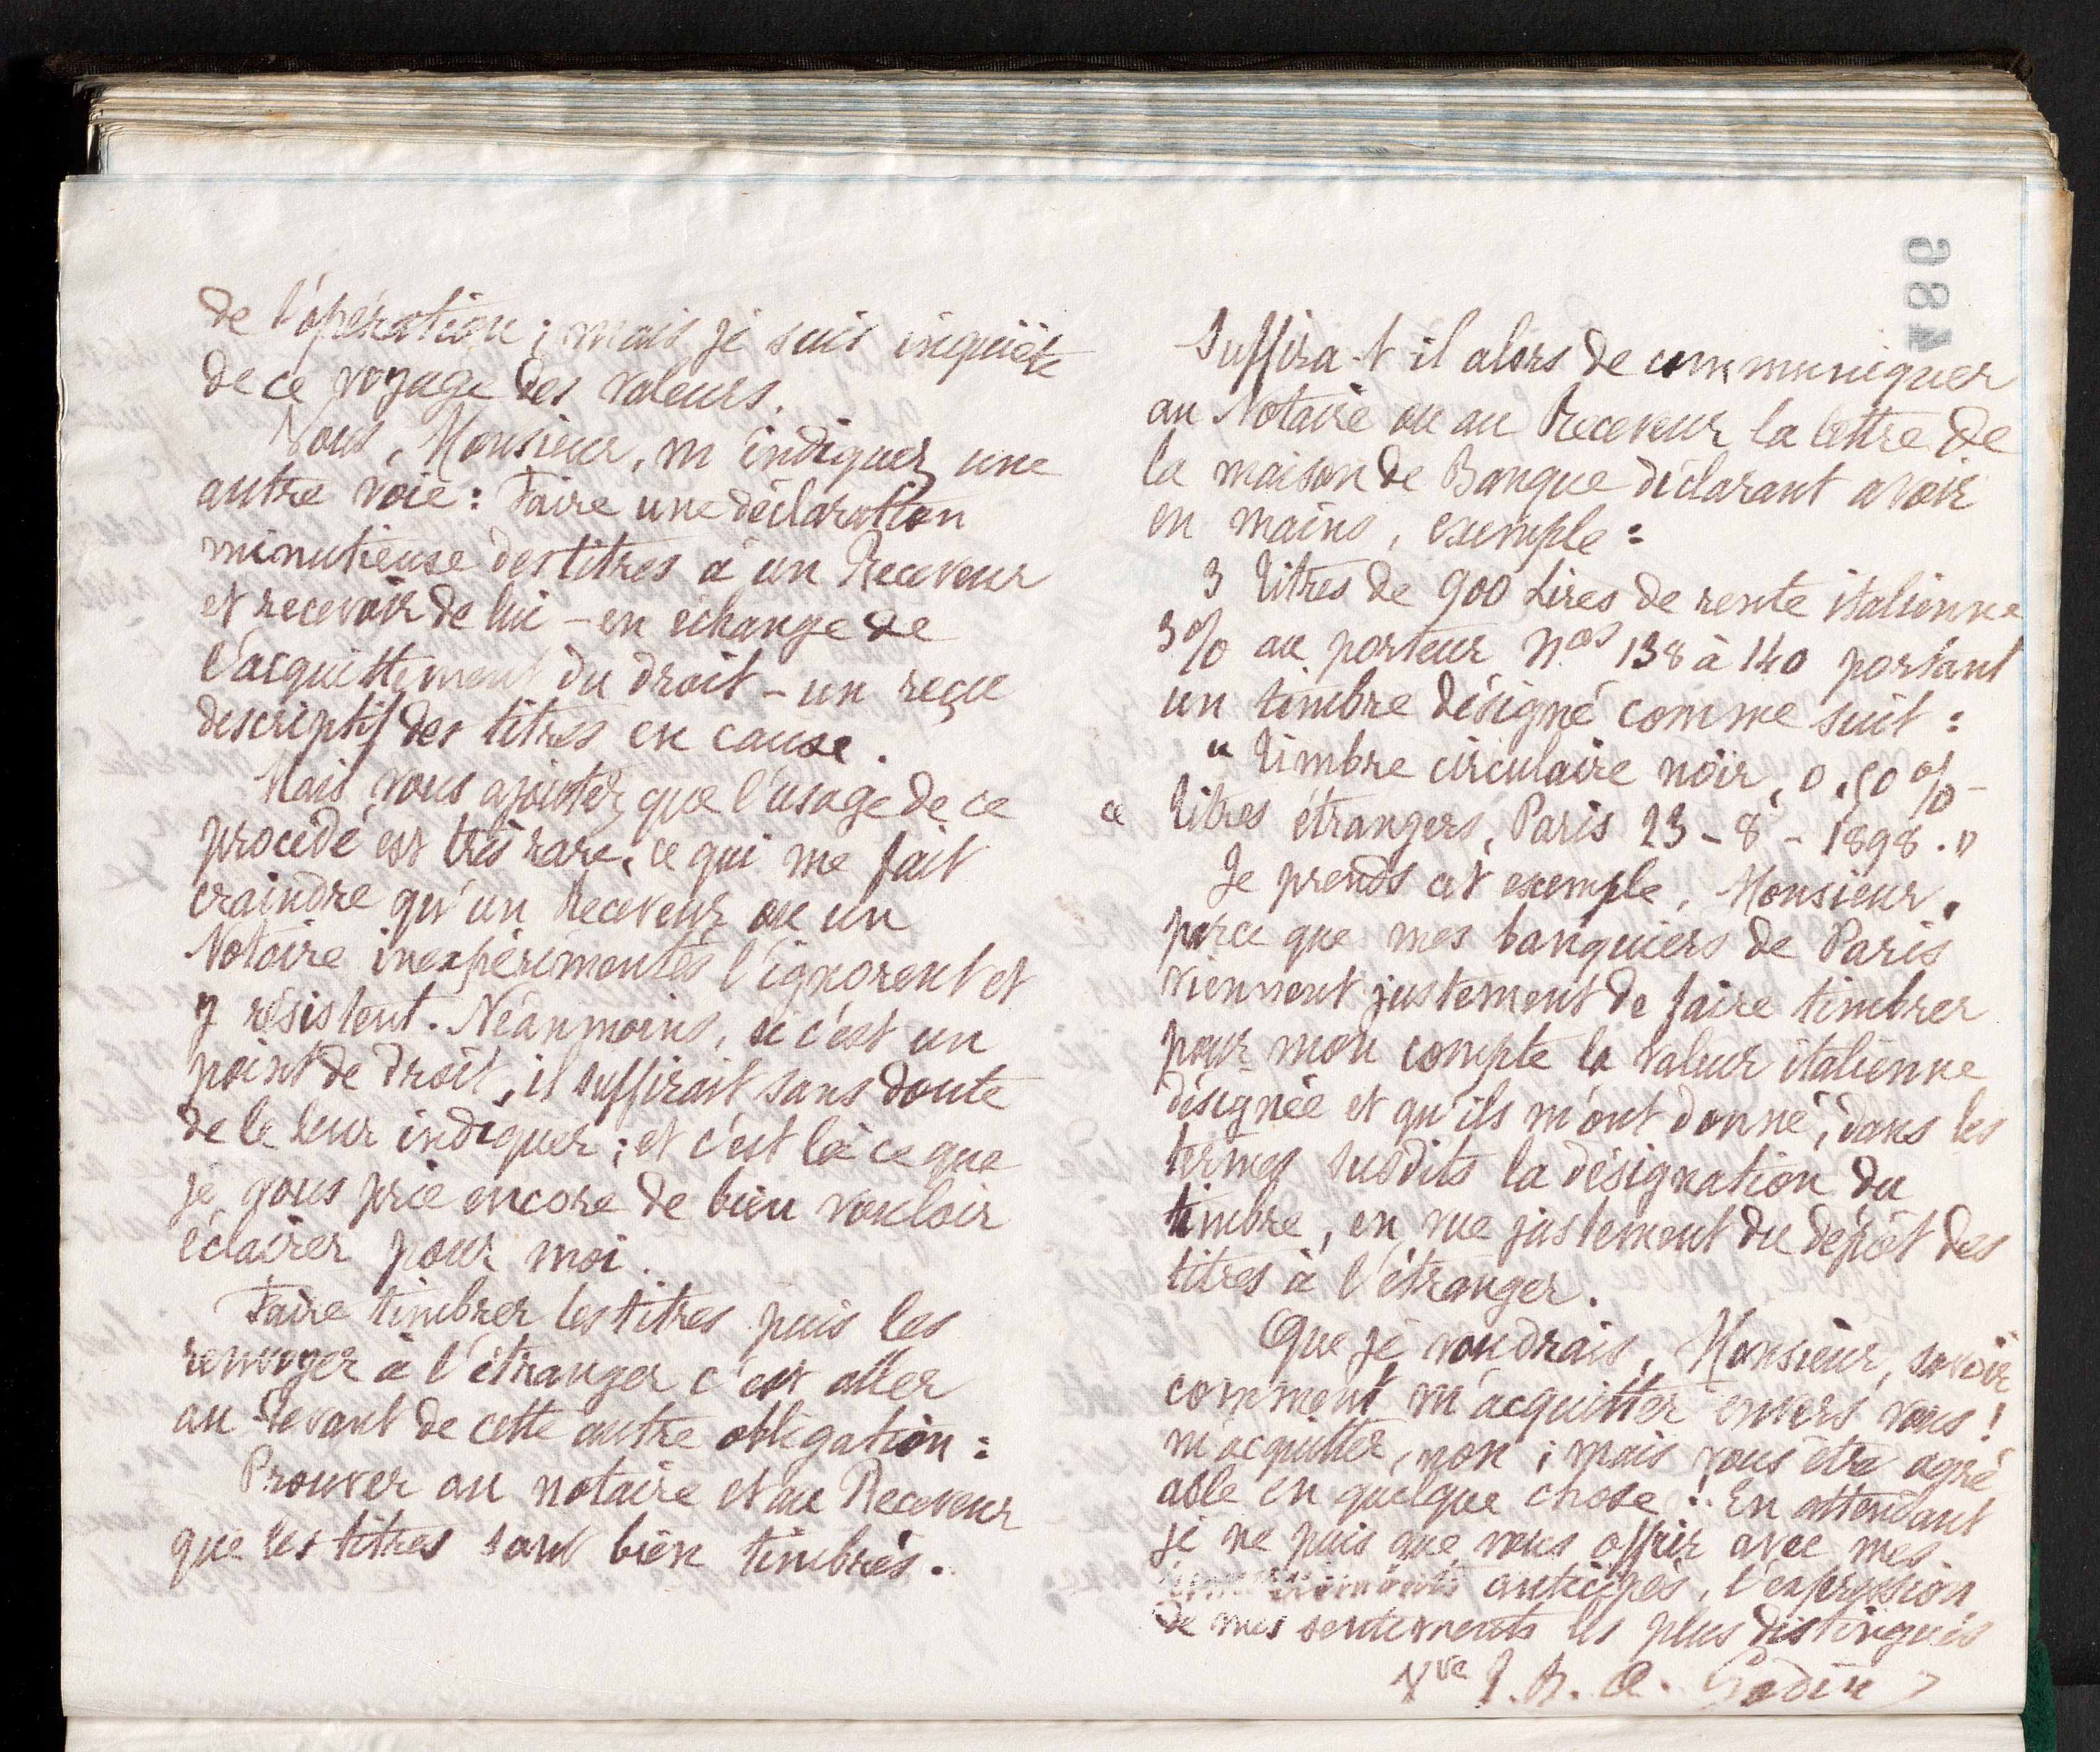 de l'opération ; mais je suis inquiète
de ce voyage des valeurs.
Vous, Monsieur, m'indiquez une
autre voie : Faire une déclaration
minutieuse des titres à un Receveur
et recevoir de lui - en échange de
l'acquittement du droit - un reçu
descriptif des titres en cause.
Mais vous ajoutez que l'usage de ce
procédé est très rare, ce qui me fait
craindre qu'un Receveur ou un
Notaire inexpérimentés l'ignorent et
y résistent. Néanmoins, si c'est un
point de droit, il suffirait sans doute
de le leur indiquer ; et c'est là ce que
je vous prie encore de bien vouloir
éclairer pour moi.
Faire timbrer les titres puis les
renvoyer à l'étranger c'est aller
au-devant de cette autre obligation :
Prouver au notaire et au Receveur
que les titres sont bien timbrés.
984
Suffira-t-il alors de communiquer
au Notaire ou au Receveur la lettre de
la maison de Banque déclarant avoir
en mains, exemple :
3 titres de 900 Lires de rente italienne
3% au porteur Nos 138 à 140 portant
un timbre désigné comme suit :
"Timbre circulaire noir, 0,50 % -
" Titres étrangers, Paris 23-8-1898."
Je prends cet exemple, Monsieur,
parce que mes banquiers de Paris
viennent justement de faire timbrer
pour mon compte la valeur italienne
désignée et qu'ils m'ont donné, dans les
termes susdits la désignation du
timbre, en vue justement du dépôt des
titres à l'étranger.
Que je voudrais, Monsieur, savoir
comment m'acquitter envers vous !
m'acquitter, non ; mais vous être agré
able en quelque chose ! En attendant
je ne puis que vous offrir avec mes
anticipés, l'expression
de mes sentiments les plus distingués
Vve J. B. A. Godin